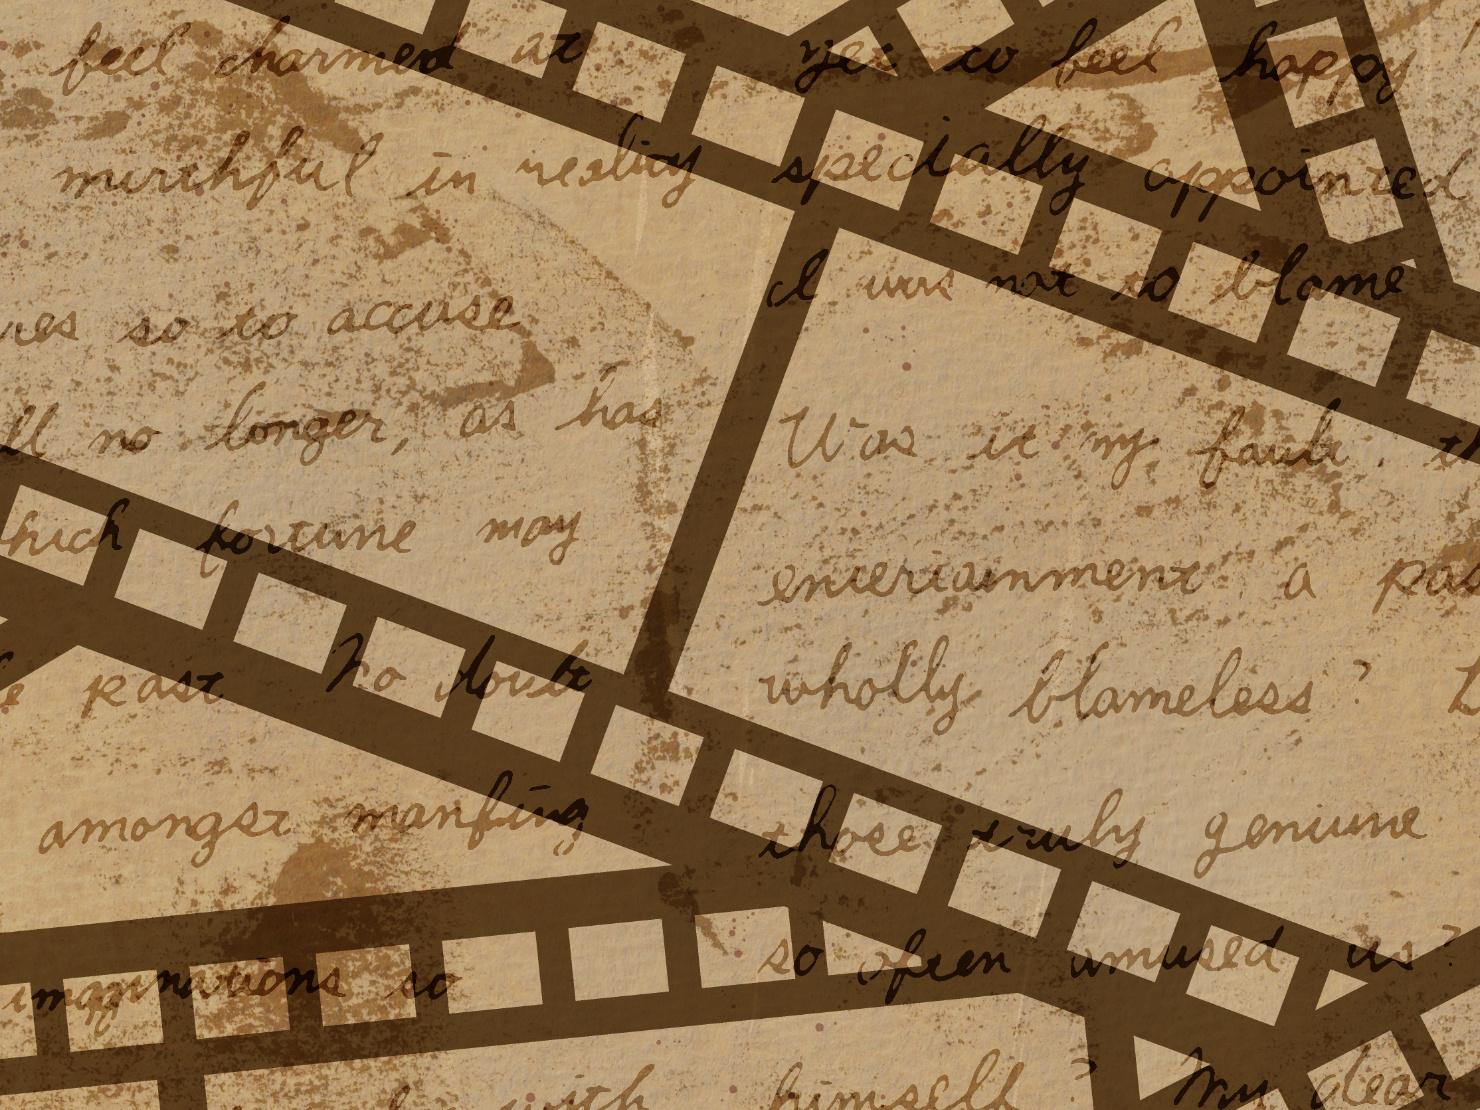 feel charmed at yer to feel happy
mirthful in reality specially appointed
I was not to blame
so to accuse
no longer, as has
Was it my fault, th
hich fortune may
entertainment a
past No doubt
wholly blameless?
amongst manfing
those truly genuine
imaginations so
so often amused us?
with himself? My dear